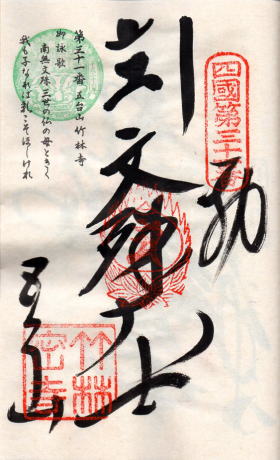 四國第三十一番
奉
文殊大士
五台山
竹林
密寺
第三十一番 五台山 竹林寺
御詠歌
南無文殊三世の仏の母ときく
我も子なれば乳こそほしけれ